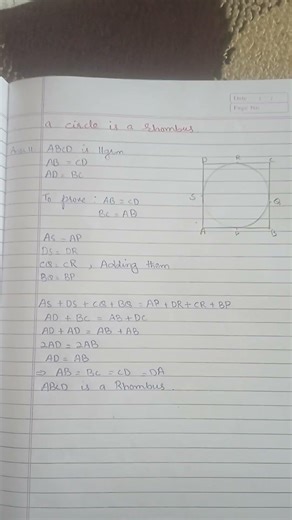 Date
Page No.
a circle is a Rhombus
Ans. ABCD is ||gm
AB = CD
AD = BC
To prove : AB = CD
BC = AD
AS = AP
DS = DR
CQ = CR , Adding them
BQ = BP
AS + DS + CQ + BQ = AP + DR + CR + BP
AD + BC = AB + DC
AD + AD = AB + AB
2AD = 2AB
AD = AB
⇒ AB = BC = CD = DA
ABCD is a Rhombus.
D R C
S Q
A P B